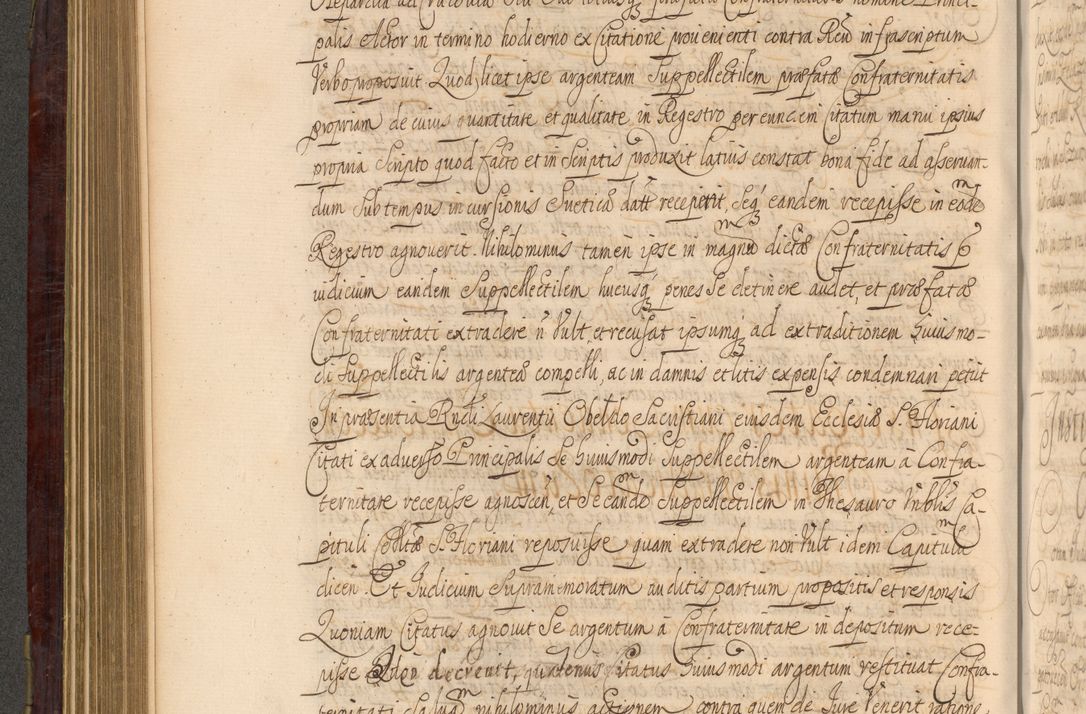 palis Actor in termino hodierno ex Citatione provenienti contra Reū infrascriptum
Verbo proposuit Quod licet ipse argenteam Suppellectilem præfatæ Confraternitatis
propriam de cuius quantitate et qualitate in Regestro per eundem Citatum manu ipsius
propria Scripto quod facto et in Scriptis produxit latius constat bona fide ad asservan-
dum Sub tempus incursionis Sueticæ datt receperit, Seq́ eandem recepisse in eodē
Regestro agnoverit. Nihilominus tamen ipse in magnū dictæ Confraternitatis p
iudicium eandem Suppellectilem hucusq́ penes Se detinere audet, et præfatæ
Confraternitati extradere n̄ Vult, et recusat ipsumq́ ad extraditionem huiusmo-
di Suppellectilis argenteæ compelli, ac in damnis et litis expensis condemnari petiit
In præsentia Rndi Laurentii Obeldo Sacristiani eiusdem Ecclesiæ S. Floriani
Citati ex adverso Principalis Se huiusmodi Suppellectilem argenteam à Confra-
ternitate recepisse agnoscen, et Se eandē Suppellectilem in Thesauro Vnblis Ca-
pituli Collttæ S. Floriani reposuisse quam extradere non Vult idem Capitulū
dicen. Et Iudicium Supramemoratum auditis partium propositis et responsis
Quoniam Citatus agnovit Se argentum à Confraternitate in depositum rece-
pisse decrevit, quatenus Citatus huiusmodi argentum restituat Confra-
ternitati Salva nihilominus actionem contra quem de Iure Venerit ratione